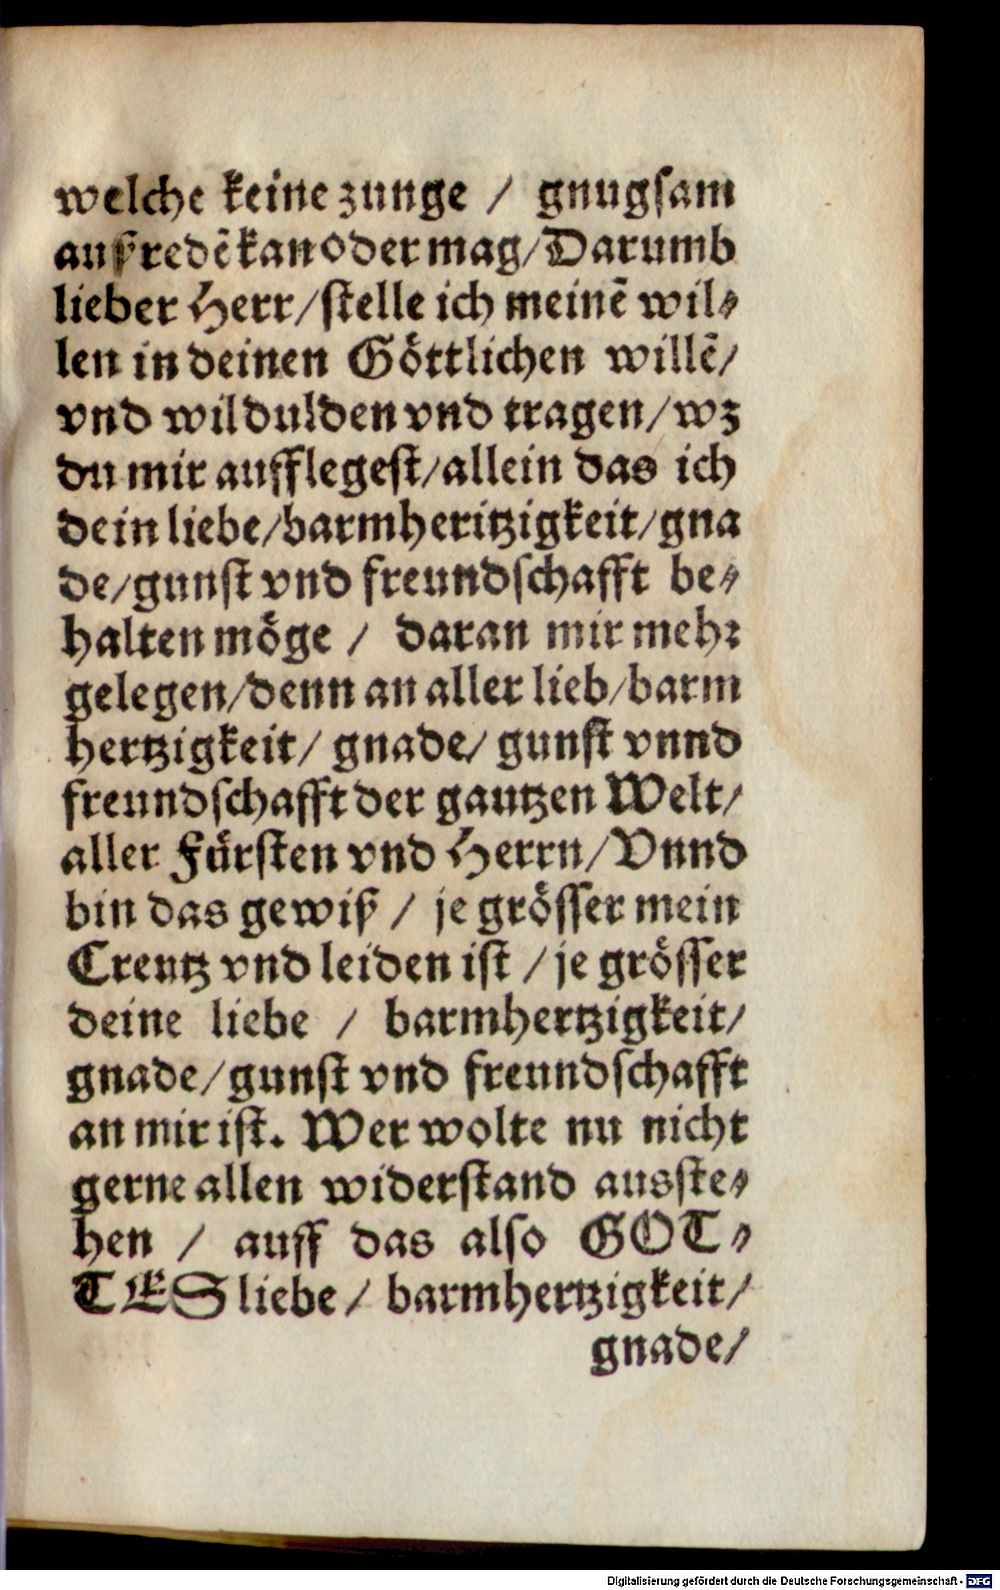 welche keine zunge / gnugsam
außredẽ kan oder mag/Darumb
lieber Herr/stelle ich meinẽ wil⸗
len in deinen Göttlichen willẽ/
vnd wil dulden vnd tragen/wz
du mir aufflegest/allein das ich
dein liebe/barmheritzigkeit/gna
de/gunst vnd freundschafft be⸗
halten möge / daran mir mehr
gelegen/denn an aller lieb/barm
hertzigkeit/ gnade/ gunst vnnd
freundschafft der gantzen Welt/
aller Fürsten vnd Herrn/Vnnd
bin das gewiß / je grösser mein
Creutz vnd leiden ist / je grösser
deine liebe / barmhertzigkeit/
gnade/gunst vnd freundschafft
an mir ist. Wer wolte nu nicht
gerne allen widerstand ausste⸗
hen / auff das also GOT⸗
TES liebe / barmhertzigkeit/
gnade/
Digitalisierung gefördert durch die Deutsche Forschungsgemeinschaft - DFG